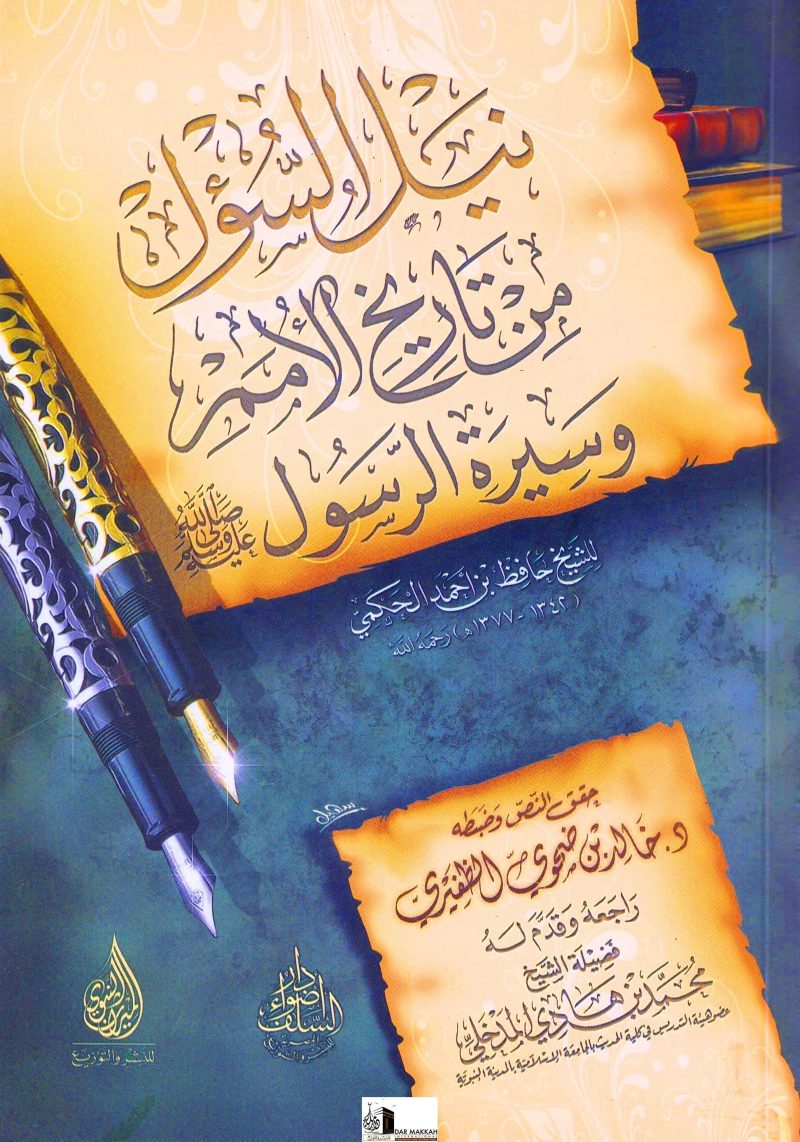 نَيْلُ السُّؤْلِ
مِنْ تَارِيخِ الأُمَمِ
وَسِيرَةِ الرَّسُولِ صَلَّى اللَّهُ عَلَيْهِ وَسَلَّمَ
لِلشَّيْخِ حَافِظْ بْنِ أَحْمَدَ الحَكَمِيّ
(١٣٤٢ - ١٣٧٧هـ) رَحِمَهُ اللَّه
حقق النَّصَّ وَضَبَطَه
د. خَالِد بْن ضَحَوِي الظَّفِيرِيّ
رَاجَعَهُ وَقَدَّمَ لَهُ
فَضِيلَة الشَّيْخ
مُحَمَّد بْن هَادِي المَدْخَلِيّ
عضو هيئة التدريس في كلية الحديث بالجامعة الإسلامية بالمدينة النبوية
الميراث النبوي
للنشر والتوزيع
دار
أضواء
السلف
المصرية
للنشر والتوزيع
DAR MAKKAH
INTERNATIONAL